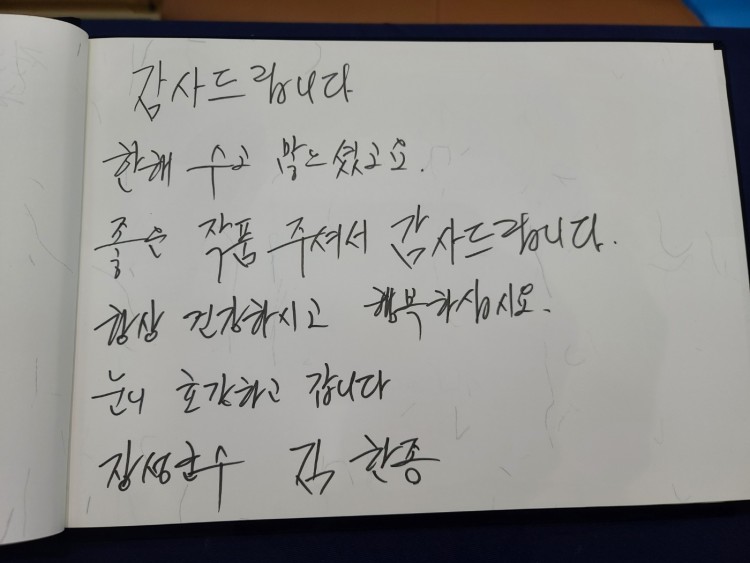 감사드립니다
한해 수고 많으셨고요.
좋은 작품 주셔서 감사드립니다.
항상 건강하시고 행복하십시요.
눈이 호강하고 갑니다
장성군수 김한종